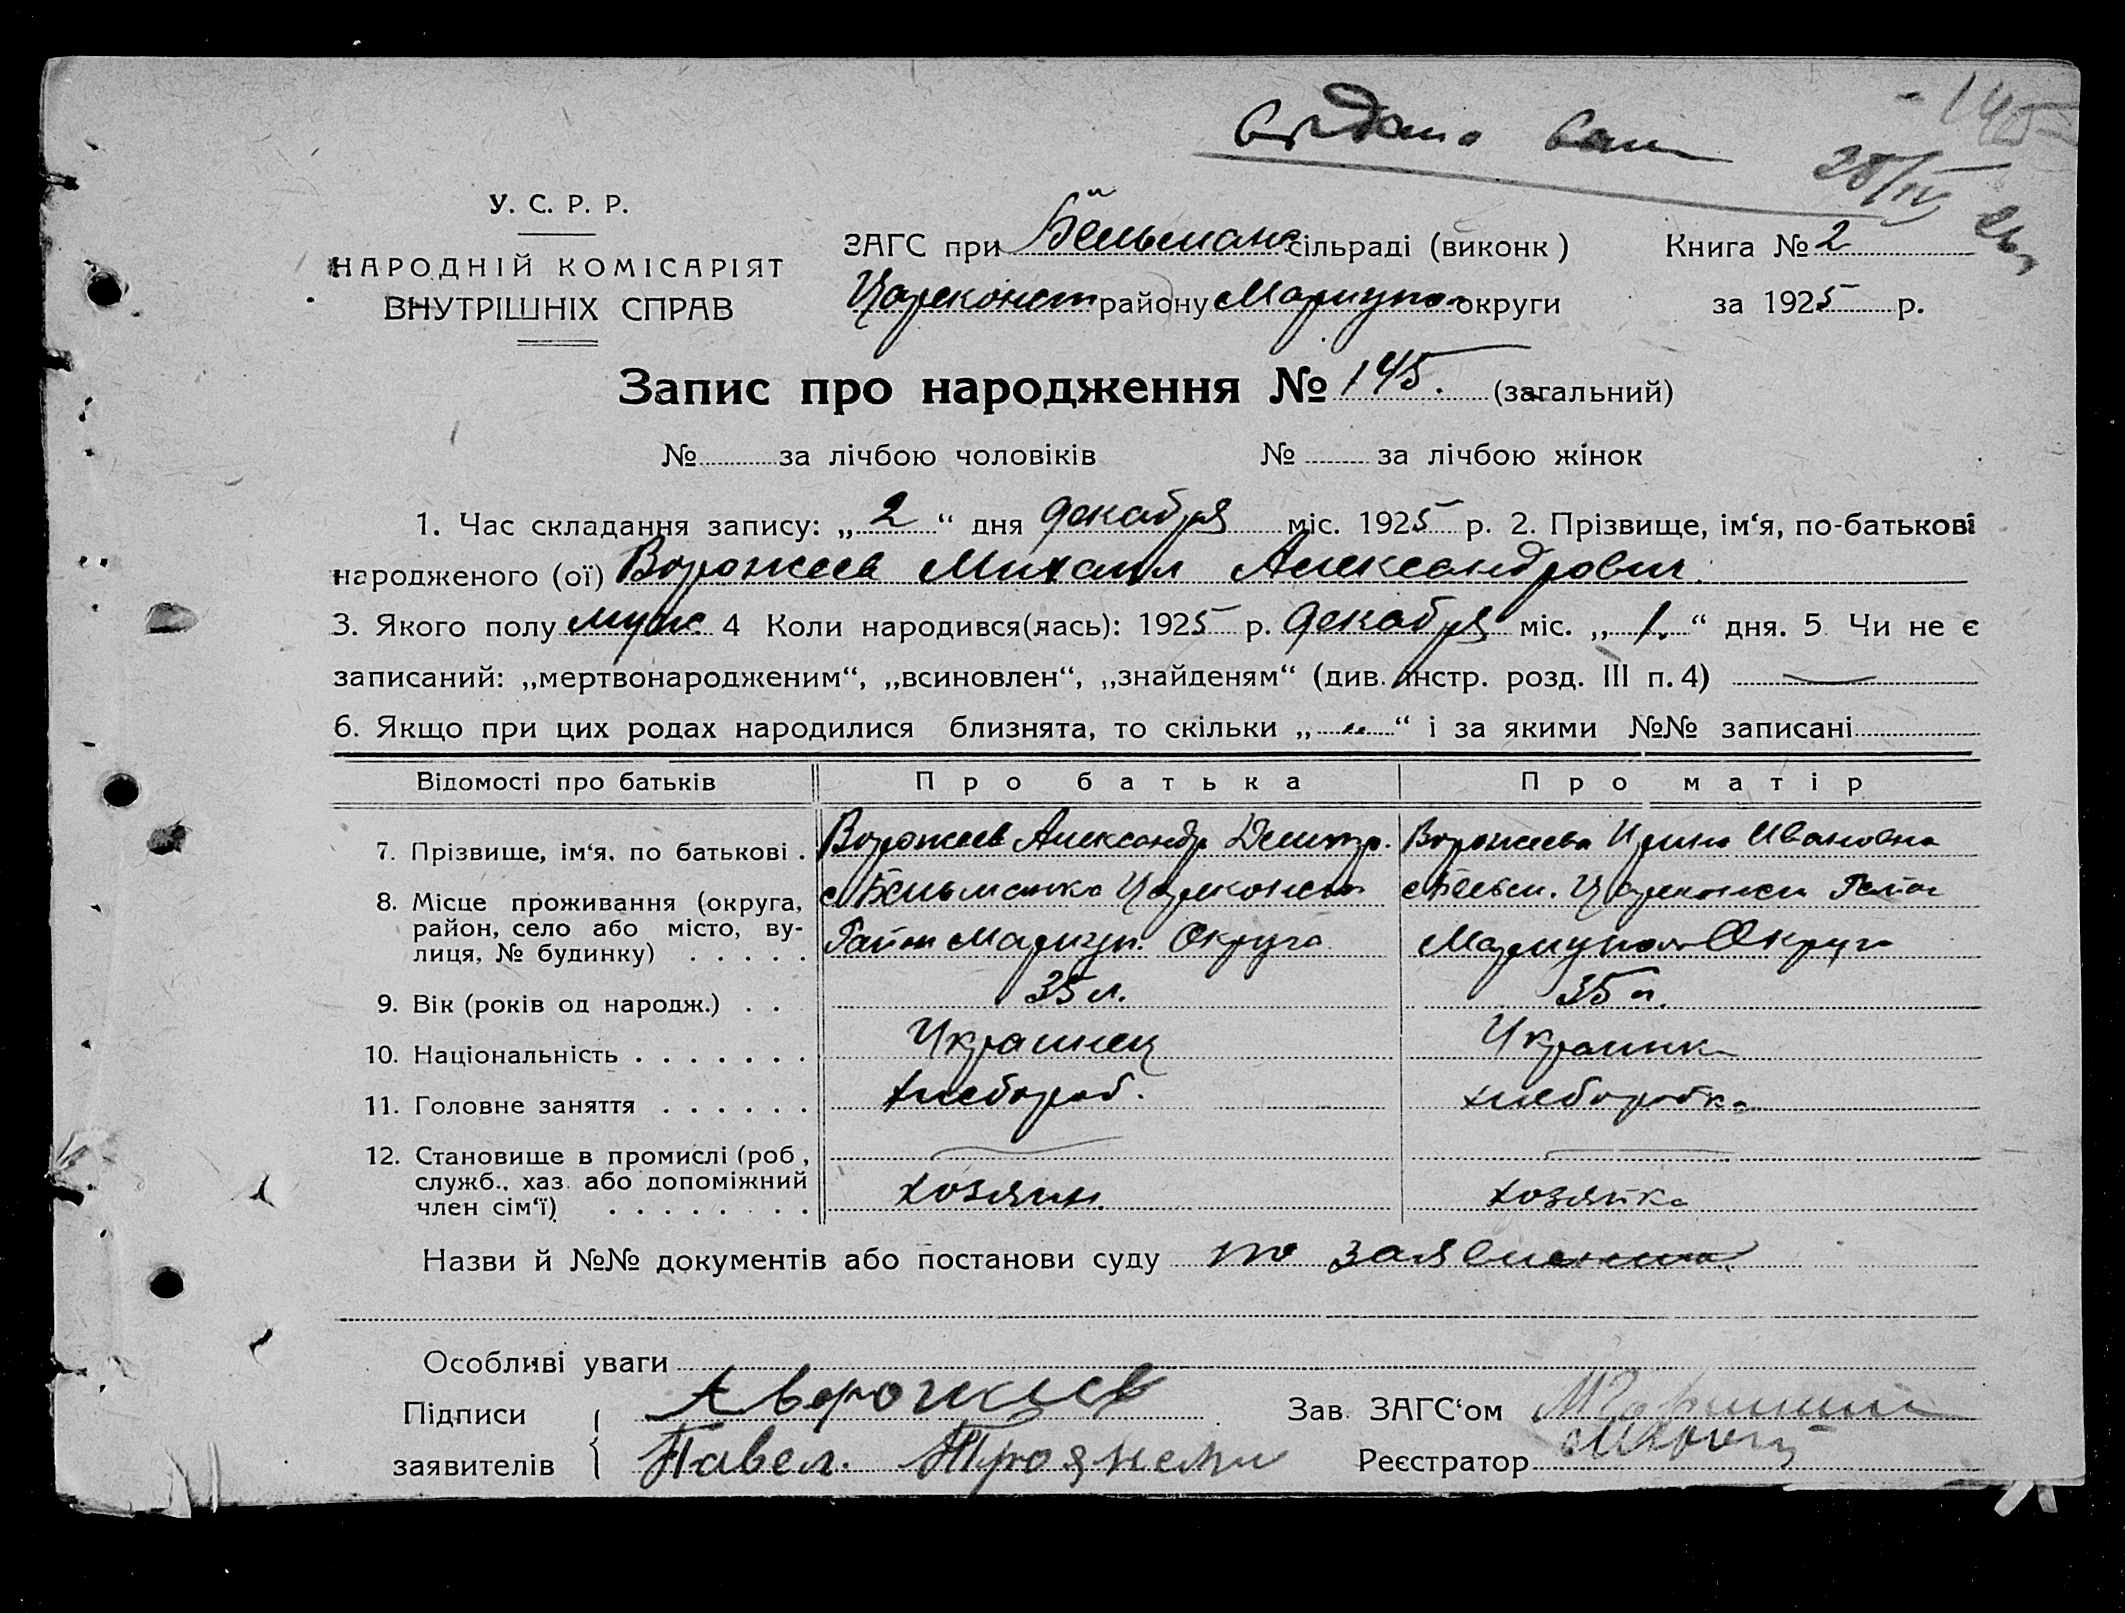 - 145
видано
28/IV 26
У. С. Р. Р.
НАРОДНІЙ КОМІСАРІЯТ
ВНУТРІШНІХ СПРАВ
ЗАГС при Бельманс сільраді (виконк ) Книга № 2
Цареконст району Мариупол округи за 1925 р.
Запис про народження № 145. (загальний)
№ за лічбою чоловіків № за лічбою жінок
1. Час складання запису: „ 2 “ дня декабря міс. 1925 р. 2. Прізвище, ім‘я, по-батькові
народженого (ої) Ворожеев Михаил Александрович.
3. Якого полу муж. 4 Коли народився(лась): 1925 р. декабря міс. „ 1. “ дня. 5 Чи не є
записаний: „мертвонародженим“, „всиновлен“, „знайденям“ (див. інстр. розд. III п. 4) —
6. Якщо при цих родах народилися близнята, то скільки „ “ і за якими №№ записані
Відомості про батьків Про батька Про матір
7. Прізвище, ім‘я, по батькові . Ворожеев Александр Дмитр. Ворожеева Ирина Ивановна
8. Місце проживання (округа, с Бельманка Цареконст с Бельм. Цареконст Район
район, село або місто, ву- Район Мариуп. Округа Мариупол Округа
лиця, № будинку) . . . . .
9. Вік (років од народж.) . . 35 л. 35 л.
10. Національність . . . . . . . Украинец Украинка
11. Головне заняття . . . . . . хлебороб. хлеборобка
12. Становище в промислі (роб , — —
служб., хаз. або допоміжний хозяин. хозяйка
член сім‘ї) . . . . . . . .
Назви й №№ документів або постанови суду по заявлению
Особливі уваги
Підписи А Ворожеев Зав. ЗАГС‘ом
заявителів Павел. Реєстратор